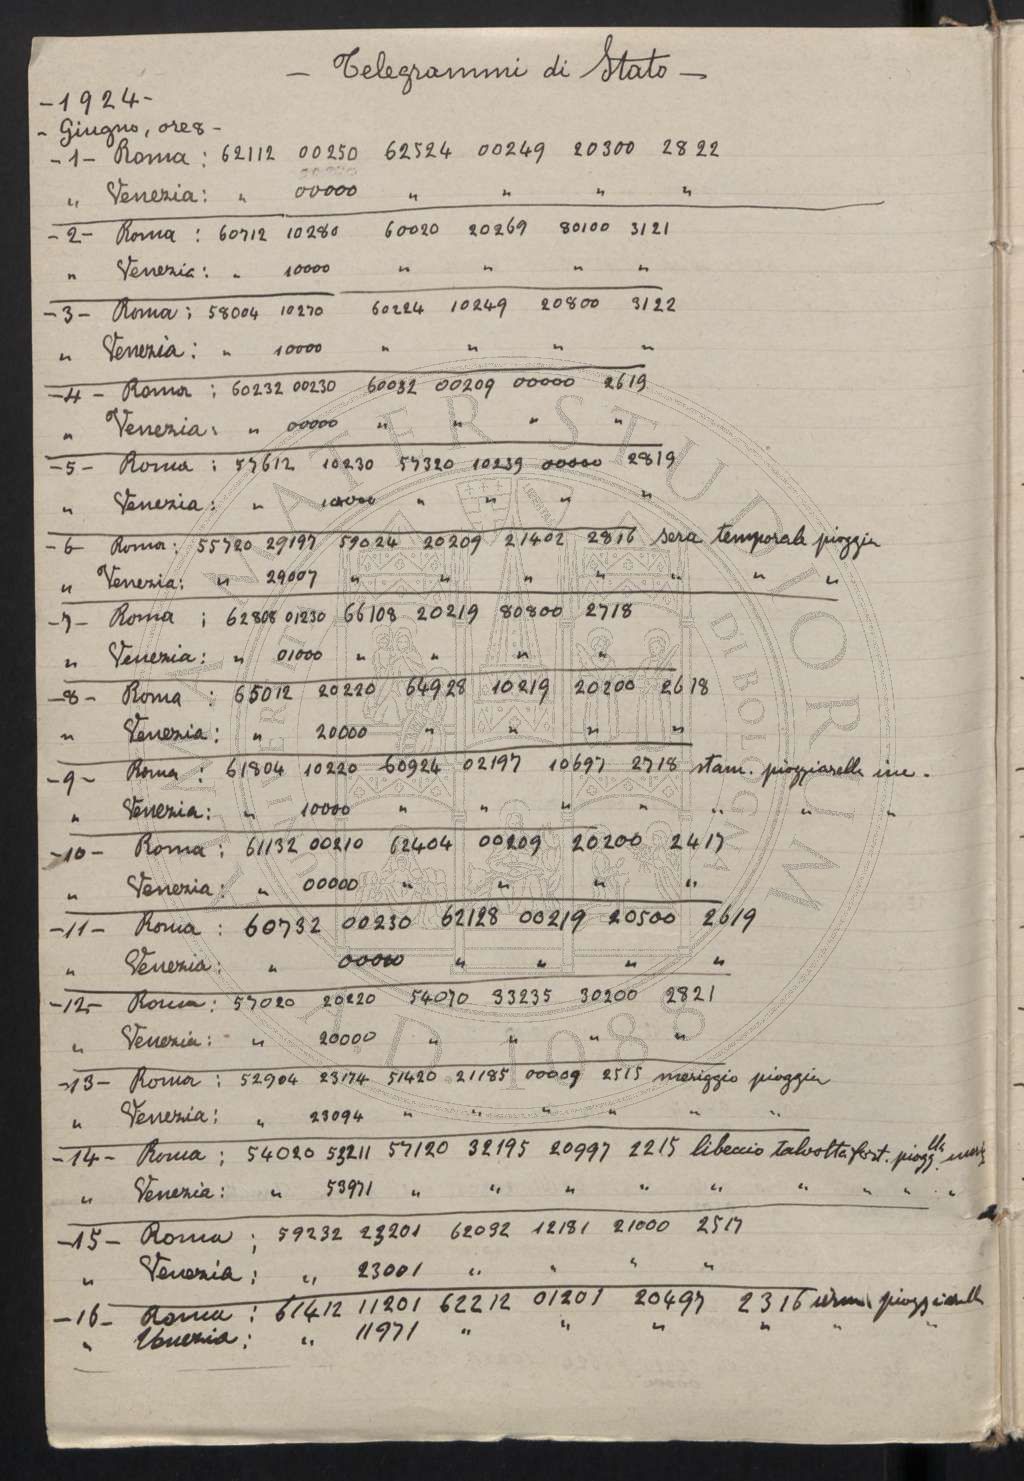 - Telegrammi di Stato -
- 1924 -
- Giugno, ore 8 -
- 1 - Roma : 62112 00250 62524 00249 20300 2822
" Venezia : " 00000 " " " "
- 2 - Roma : 60712 10280 60020 20269 80100 3121
" Venezia : " 10000 " " " "
- 3 - Roma : 58004 10270 60224 10249 20800 3122
" Venezia : " 10000 " " " "
- 4 - Roma : 60232 00230 60032 00209 00000 2619
" Venezia : " 00000 " " " "
- 5 - Roma : 57612 10230 57320 10239 00000 2819
" Venezia : " 10000 " " " "
- 6 Roma : 55720 29197 59024 20209 21402 2816 sera temporale pioggia
" Venezia : " 29007 " " " " " " "
- 7 - Roma : 62808 01230 66108 20219 80800 2718
" Venezia : " 01000 " " " "
- 8 - Roma : 65012 20220 64928 10219 20200 2618
" Venezia : " 20000 " " " "
- 9 - Roma : 61804 10220 60924 02197 10697 2718 stam. pioggiarella
" Venezia : " 10000 " " " " " " "
- 10 - Roma : 61132 00210 62404 00209 20200 2417
" Venezia : " 00000 " " " "
- 11 - Roma : 60732 00230 62128 00219 20500 2619
" Venezia : " 00000 " " " "
- 12 - Roma : 57020 20220 54070 33235 30200 2821
" Venezia : " 20000 " " " "
- 13 - Roma : 52904 23174 51420 21185 00009 2515 meriggio pioggia
" Venezia : " 23094 " " " " " "
- 14 - Roma : 54020 53211 57120 32195 20997 2215 libeccio talvolta fort.
" Venezia : " 53971 " " " " " " " " "
- 15 - Roma : 59232 23201 62032 12181 21000 2517
" Venezia : " 23001 " " " "
- 16 - Roma : 61412 11201 62212 01201 20497 2316 pioggiarella
" Venezia : " 11971 " " " " " "
ALMA MATER STUDIORUM
A.D. 1088